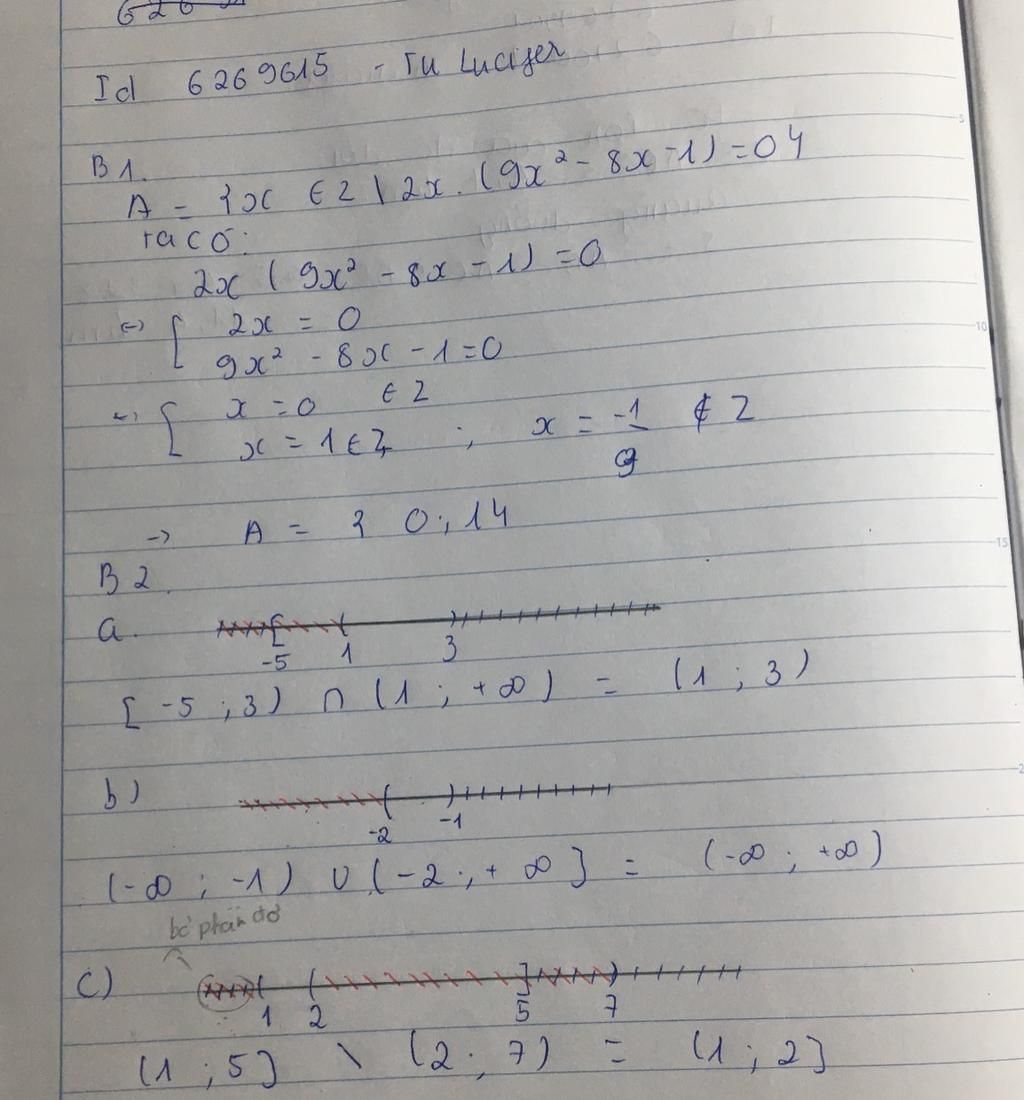 Id 6269615 - Tu Lucifer
B1.
A = {x ∈ Z | 2x. (9x² - 8x - 1) = 0}
Ta có:
2x ( 9x² - 8x - 1) = 0
<=> [ 2x = 0
9x² - 8x - 1 = 0
<=> [ x = 0 ∈ Z
x = 1 ∈ Z ; x = -1/9 ∉ Z
-> A = { 0 ; 1}
B2.
a.
-5 1 3
[ -5 ; 3) ∩ (1 ; +∞) = (1 ; 3)
b)
-2 -1
(-∞ ; -1) ∪ (-2 ; +∞] = (-∞ ; +∞)
bỏ phần đó
c)
1 2 5 7
(1 ; 5] \ (2 ; 7) = (1 ; 2]